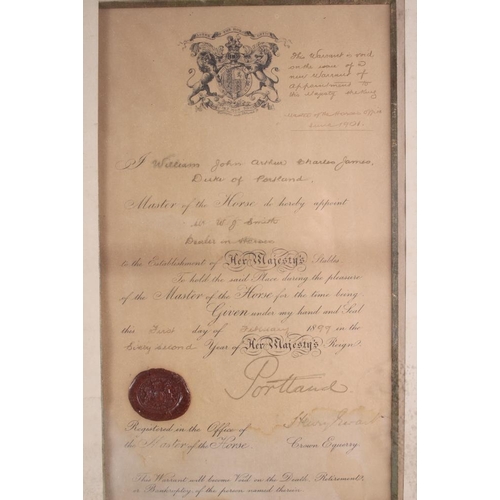 This Warrant is void
on the issue of a
new Warrant of
Appointment to
His Majesty the King
June 1901.
I William John Arthur Charles James,
Duke of Portland,
Master of the Horse do hereby appoint
W J Smith
Dealer in Horses
to the Establishment of Her Majesty's Stables
To hold the said Place during the pleasure
of the Master of the Horse for the time being
Given under my hand and Seal
this First day of February 1899 in the
Year of Her Majesty's Reign
Portland.
Registered in the Office of
the Master of the Horse Crown Equerry.
This Warrant will become Void on the Death, Retirement,
or Bankruptcy, of the person named therein